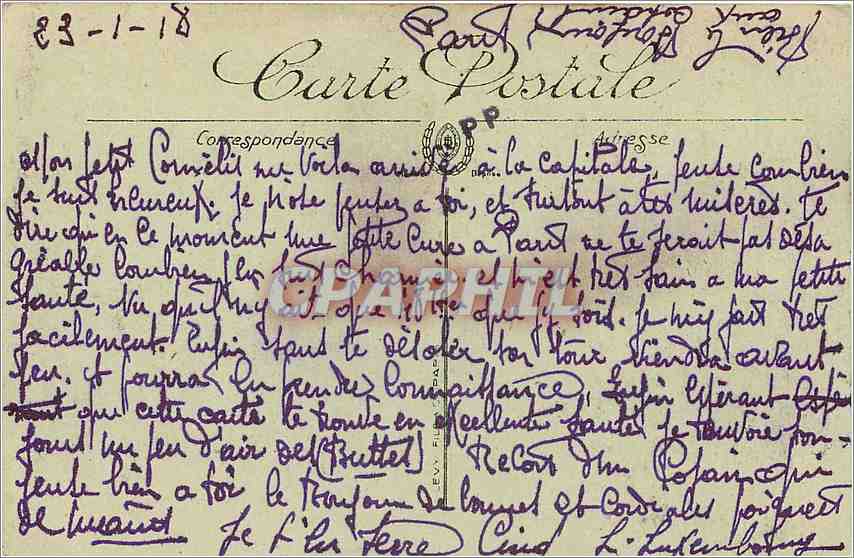 23-1-18
Paris
Bien le
Bonjour
aux
Carte Postale
Correspondance
Adresse
PP
Mon petit Cornélis me voila arrivé à la capitale, pense combien
je suis heureux. Je n'ose penser a toi, et surtout à tes misères. te
dire qu'en ce moment une petite cure a Paris ne te serait pas désa
gréable combien j'en suis et m'est très sain a ma petite
santé, vu qu'il n'y ait que que j'y sois. je m'y fait très
facilement. Enfin sans te désoler ton tour viendra avant
peu. et pourra en prendre connaissance, Enfin espérant
que cette carte te trouve en excellente santé je t'envoie
un peu d'air des (Buttes) Reçois d'un Copain qui
pense bien a toi le Bonjour de et cordiales poignées
de mains
Je
L. Luxembourg
CPAPHIL